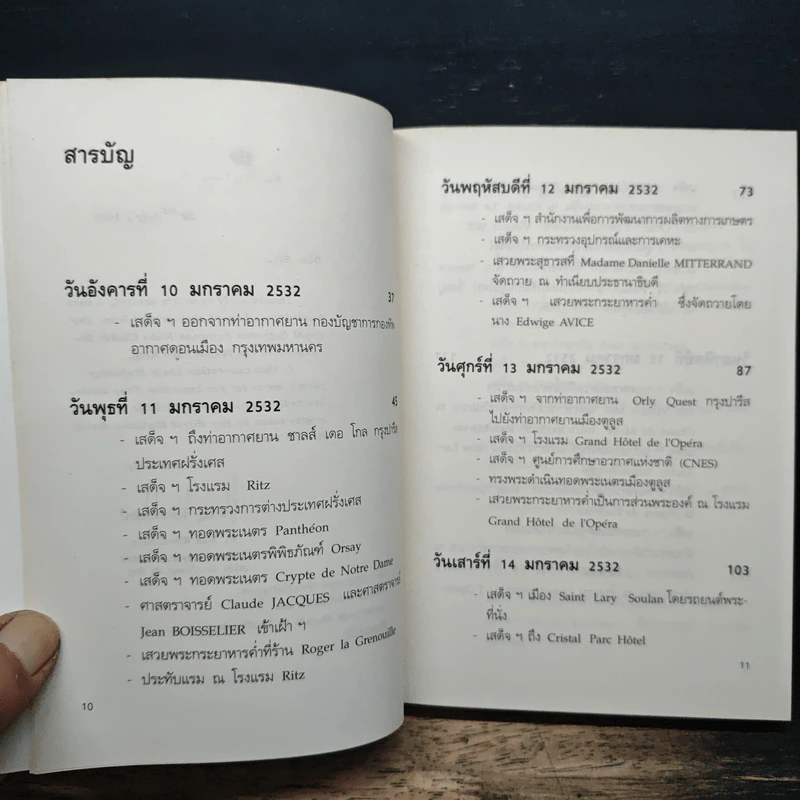 สารบัญ
วันอังคารที่ 10 มกราคม 2532 37
- เสด็จ ฯ ออกจากท่าอากาศยาน กองบัญชาการกองทัพ
อากาศดอนเมือง กรุงเทพมหานคร
วันพุธที่ 11 มกราคม 2532 45
- เสด็จ ฯ ถึงท่าอากาศยาน ชาลส์ เดอ โกล กรุงปารีส
ประเทศฝรั่งเศส
- เสด็จ ฯ โรงแรม Ritz
- เสด็จ ฯ กระทรวงการต่างประเทศฝรั่งเศส
- เสด็จ ฯ ทอดพระเนตร Panthéon
- เสด็จ ฯ ทอดพระเนตรพิพิธภัณฑ์ Orsay
- เสด็จ ฯ ทอดพระเนตร Crypte de Notre Dame
- ศาสตราจารย์ Claude JACQUES และศาสตราจารย์
Jean BOISSELIER เข้าเฝ้า ฯ
- เสวยพระกระยาหารค่ำที่ร้าน Roger la Grenouille
- ประทับแรม ณ โรงแรม Ritz
10
วันพฤหัสบดีที่ 12 มกราคม 2532 73
- เสด็จ ฯ สำนักงานเพื่อการพัฒนาการผลิตทางการเกษตร
- เสด็จ ฯ กระทรวงอุปกรณ์และการเคหะ
- เสวยพระสุธารสที่ Madame Danielle MITTERRAND
จัดถวาย ณ ทำเนียบประธานาธิบดี
- เสด็จ ฯ เสวยพระกระยาหารค่ำ ซึ่งจัดถวายโดย
นาง Edwige AVICE
วันศุกร์ที่ 13 มกราคม 2532 87
- เสด็จ ฯ จากท่าอากาศยาน Orly Quest กรุงปารีส
ไปยังท่าอากาศยานเมืองตูลูส
- เสด็จ ฯ โรงแรม Grand Hôtel de l'Opéra
- เสด็จ ฯ ศูนย์การศึกษาอวกาศแห่งชาติ (CNES)
- ทรงพระดำเนินทอดพระเนตรเมืองตูลูส
- เสวยพระกระยาหารค่ำเป็นการส่วนพระองค์ ณ โรงแรม
Grand Hôtel de l'Opéra
วันเสาร์ที่ 14 มกราคม 2532 103
- เสด็จ ฯ เมือง Saint Lary Soulan โดยรถยนต์พระ-
ที่นั่ง
- เสด็จ ฯ ถึง Cristal Parc Hôtel
11